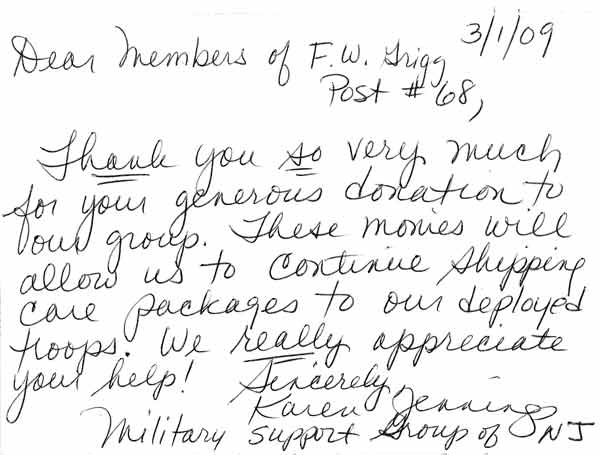 3/1/09
Dear Members of F.W. Grigg
Post #68,
Thank you so very much
for your generous donation to
our group. These monies will
allow us to continue shipping
care packages to our deployed
troops. We really appreciate
your help! Sincerely
Karen Jennings
Military Support Group of NJ